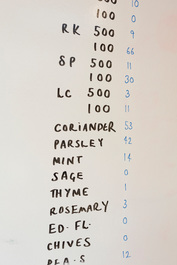 500 10
100 0
RK 500 9
100 66
SP 500 11
100 30
LC 500 3
100 11
CORIANDER 53
PARSLEY 42
MINT 14
SAGE 0
THYME 1
ROSEMARY 3
ED. FL. 0
CHIVES 0
PEA. S 12